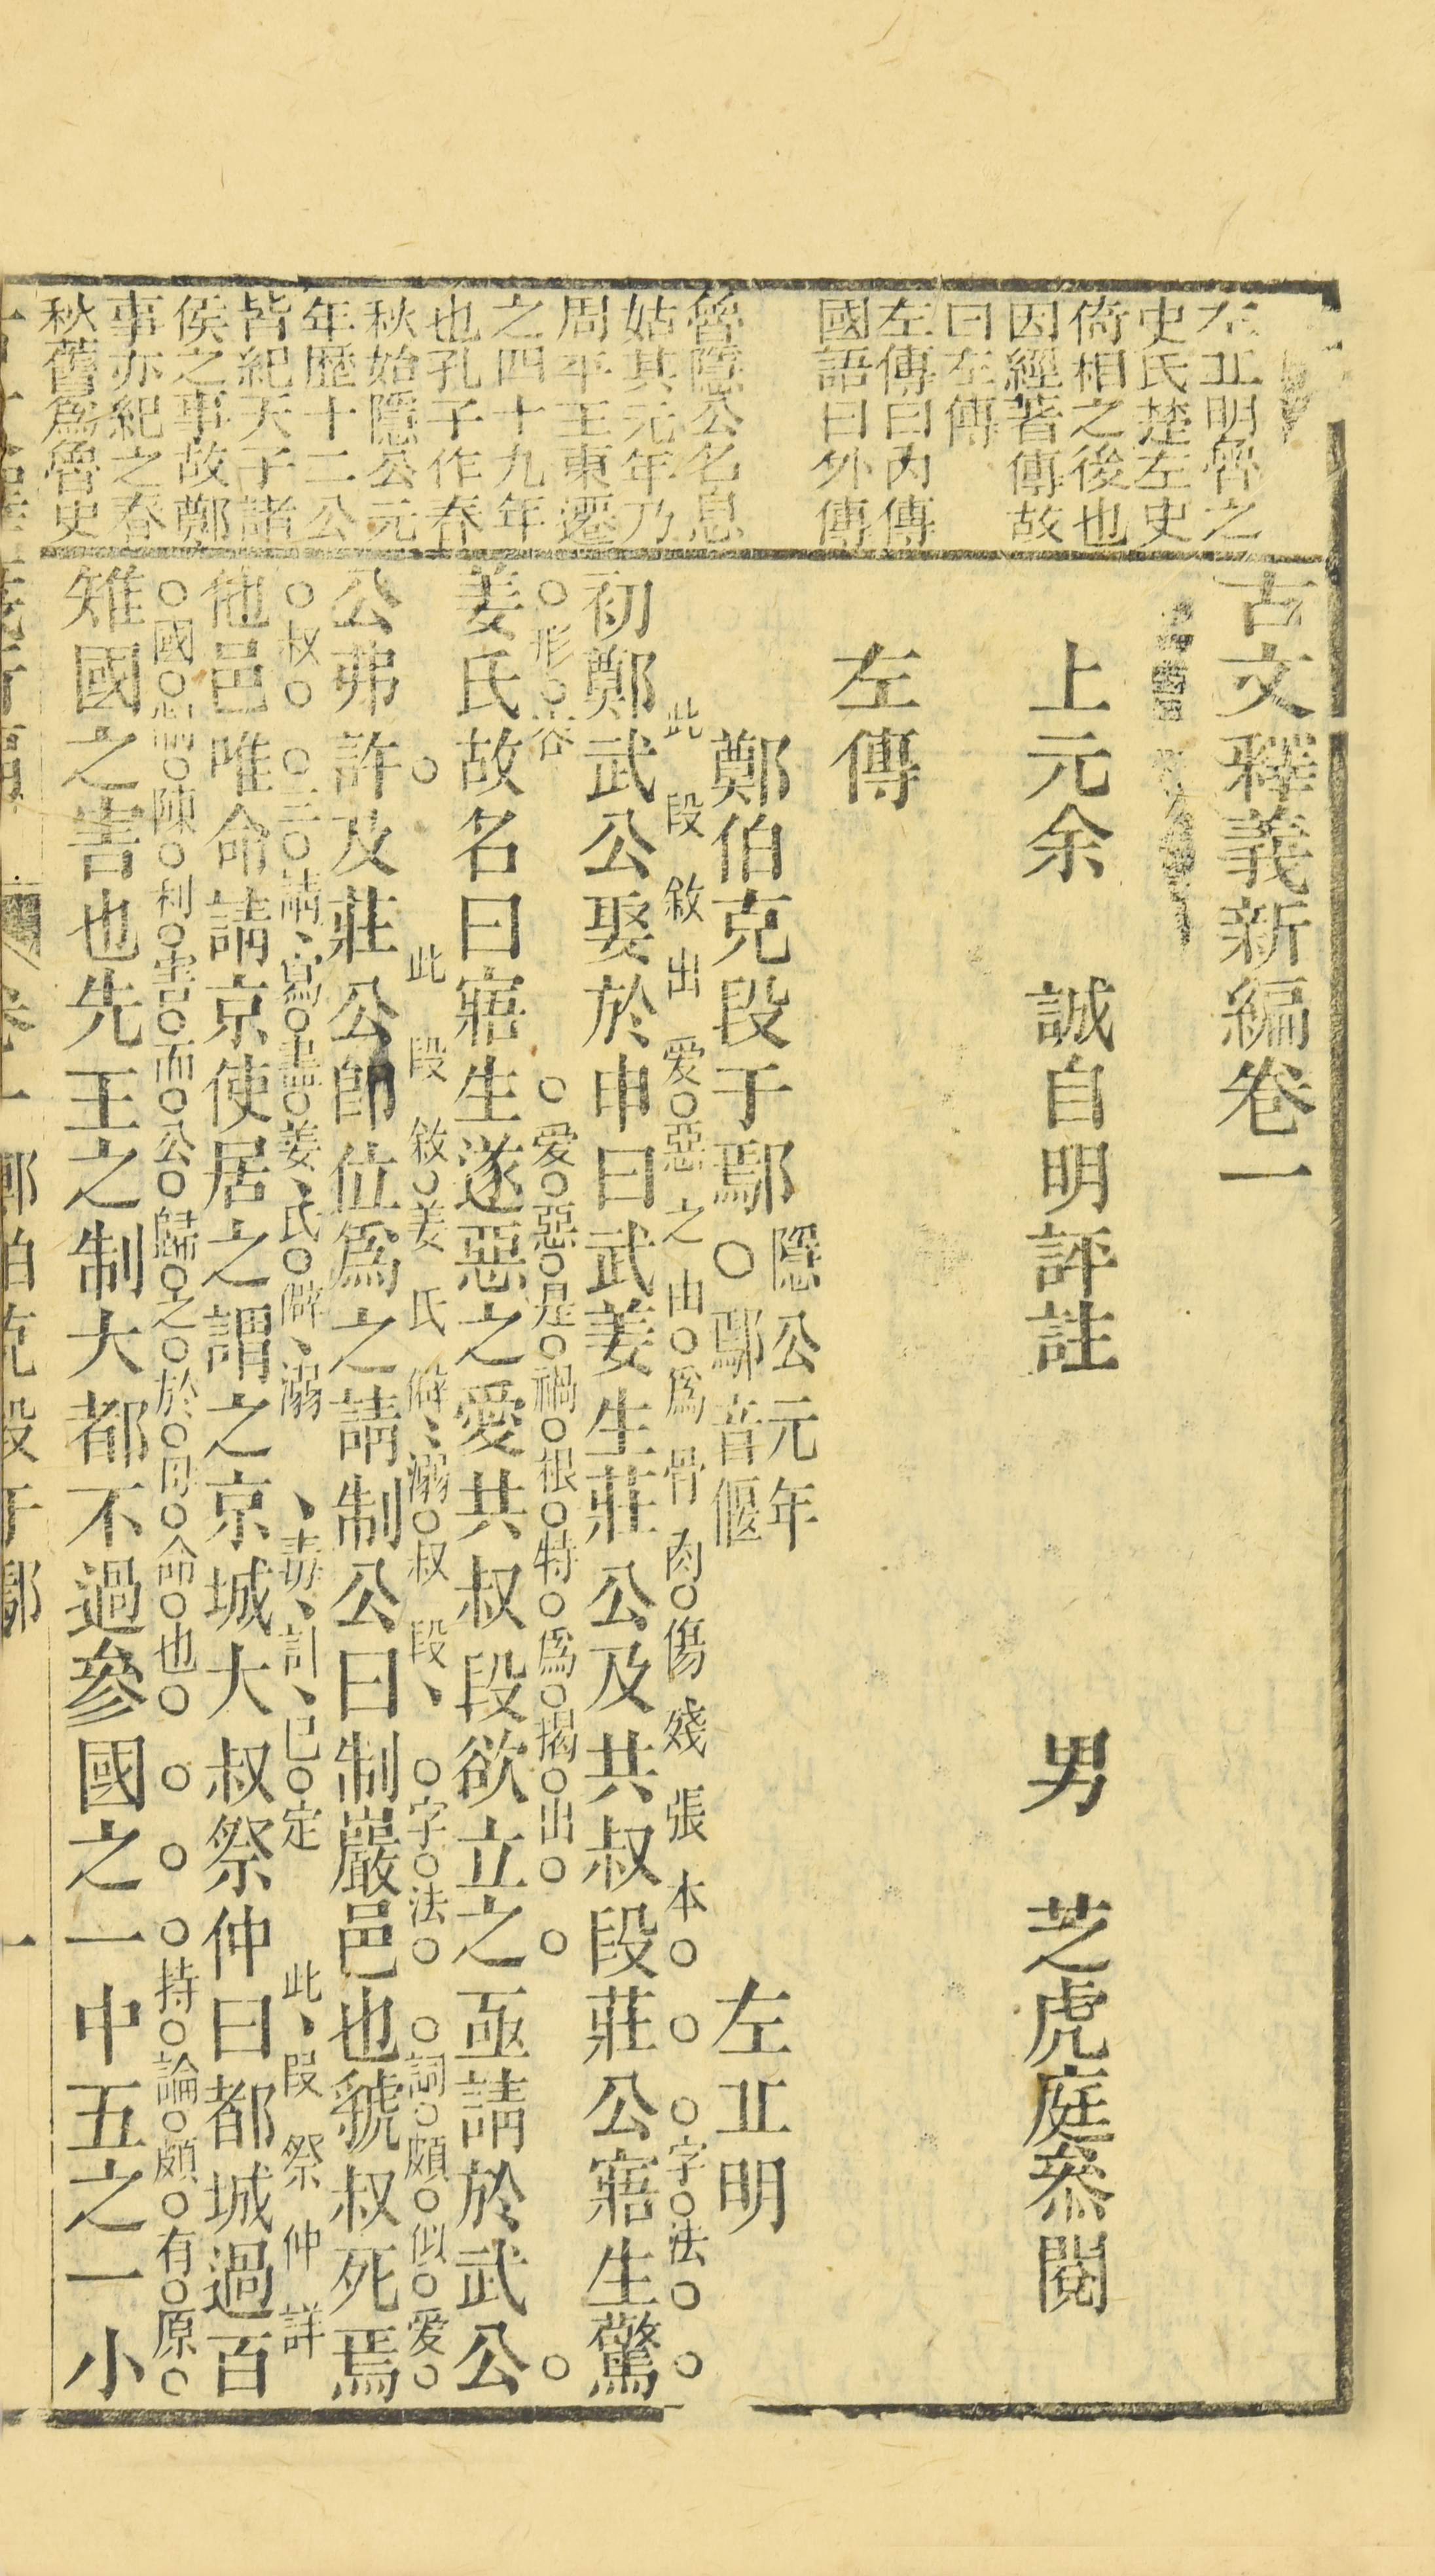 古文釋義新編卷一
上元余　誠自明評註　男　芝虎庭叅閱
左傳
鄭伯克段于鄢　隱公元年○鄢音偃　左丠明
此段敘出愛惡之由為骨肉傷殘張本　字法
初鄭武公娶於申曰武姜生莊公及共叔段莊公寤生驚
愛惡是禍根特為揭出
姜氏故名曰寤生遂惡之愛共叔段欲立之亟請於武公
此段敘姜氏僻溺叔段　字法　詞頗似愛
公弗許及莊公卽位爲之請制公曰制巖邑也虢叔死焉
叔　三請寫盡姜氏僻溺　毒計已定　此段祭仲詳
他邑唯命請京使居之謂之京城大叔祭仲曰都城過百
陳利害而公歸之於母命也　持論頗有原
雉國之害也先王之制大都不過參國之一中五之一小
左丠明魯之
史氏楚左史
倚相之後也
因經著傳故
曰左傳
左傳曰內傳
國語曰外傳
魯隱公名息
姑其元年乃
周平王東遷
之四十九年
也孔子作春
秋始隱公元
年歷十二公
皆紀天子諸
侯之事故鄭
事亦紀之春
秋舊爲魯史
卷一　鄭伯克段于鄢　一